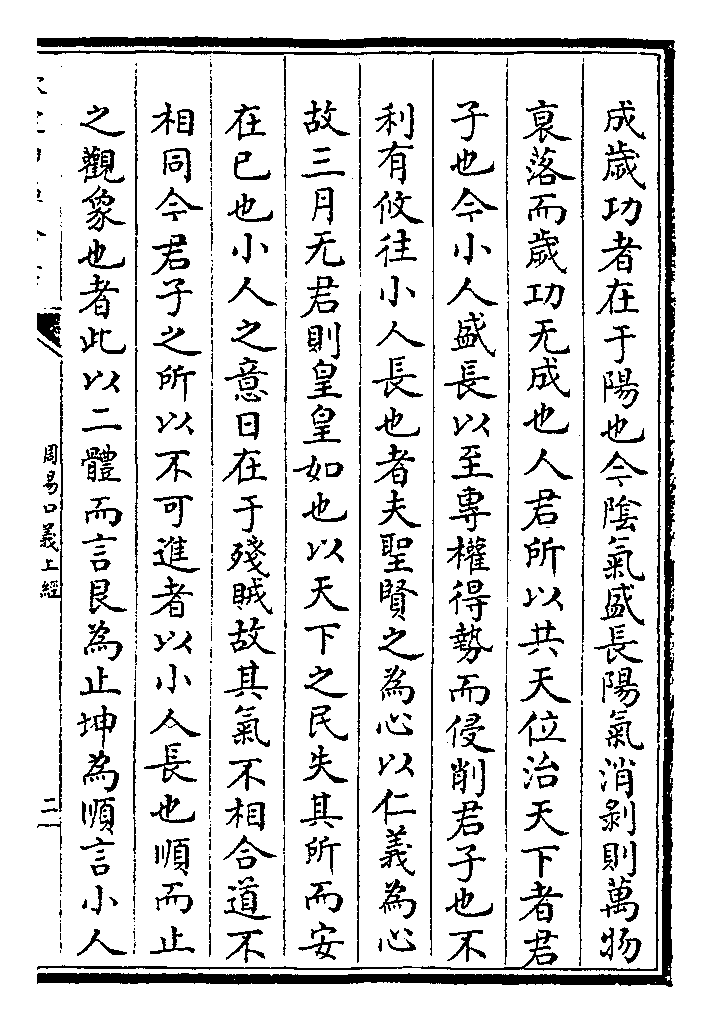 成歲功者在于陽也今陰氣盛長陽氣消剝則萬物
衰落而歲功无成也人君所以共天位治天下者君
子也今小人盛長以至專權得勢而侵削君子也不
利有攸往小人長也者夫聖賢之為心以仁義為心
故三月无君則皇皇如也以天下之民失其所而安
在已也小人之意日在于殘賊故其氣不相合道不
相同今君子之所以不可進者以小人長也順而止
之觀象也者此以二體而言艮為止坤為順言小人
周易口義上經
二